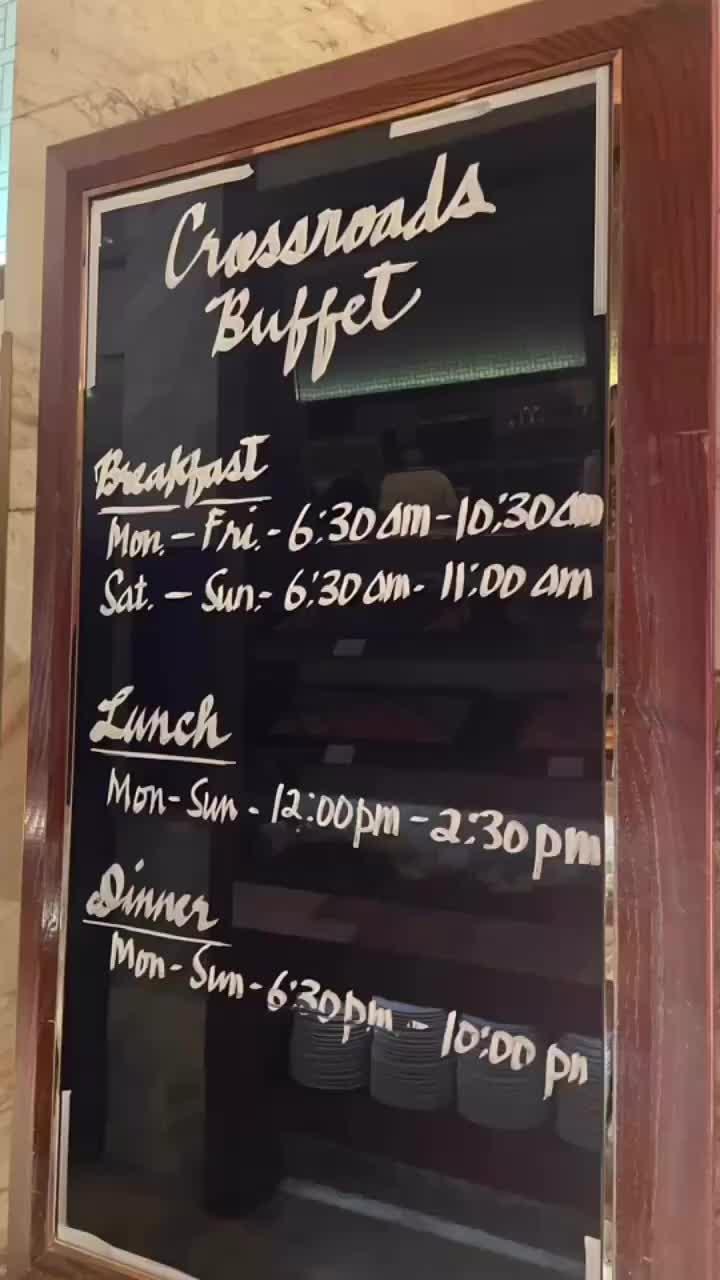 Crossroads
Buffet
Breakfast
Mon. - Fri. - 6:30 am - 10:30 am
Sat. - Sun. - 6:30 am - 11:00 am
Lunch
Mon - Sun - 12:00 pm - 2:30 pm
Dinner
Mon - Sun - 6:30 pm - 10:00 pm